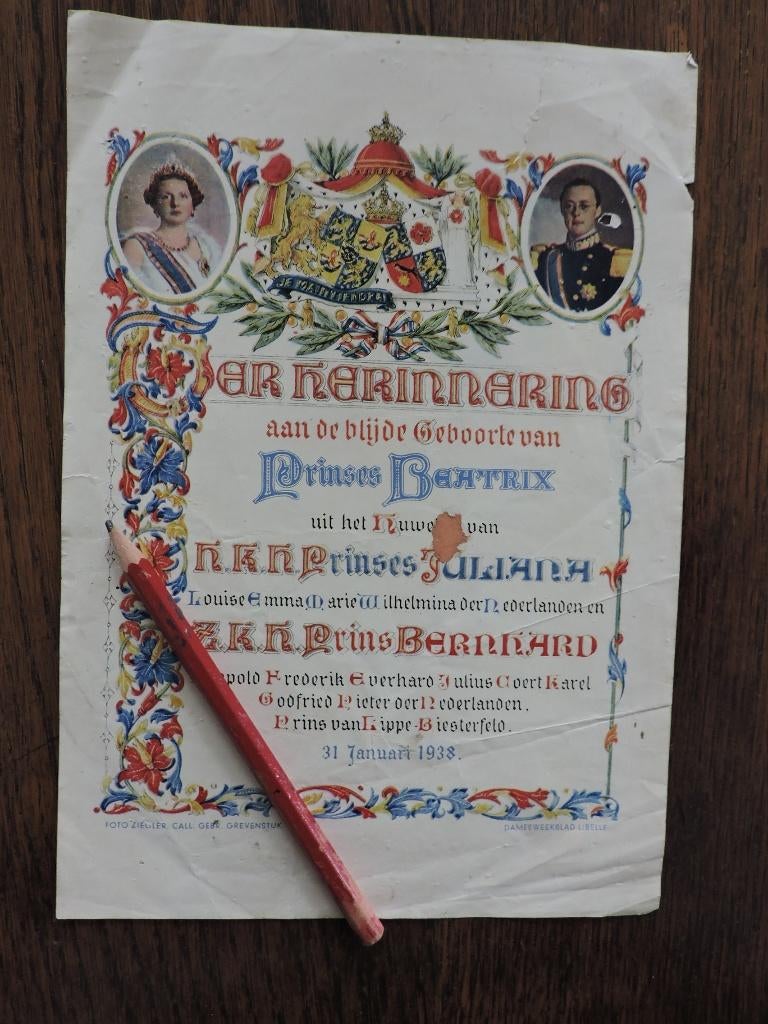 JE MAINTIENDRAI
TER HERINNERING
aan de blijde Geboorte van
Prinses BEATRIX
uit het van
H.K.H. Prinses JULIANA
Louise Emma Marie Wilhelmina der Nederlanden en
Z.K.H. Prins BERNHARD
Frederik Everhard Julius Coert Karel
Godfried Pieter der Nederlanden,
Prins van Lippe-Biesterfeld.
31 Januari 1938.
FOTO ZIEGLER. CALL. GEBR. GREVENSTUK
DAMESWEEKBLAD LIBELLE